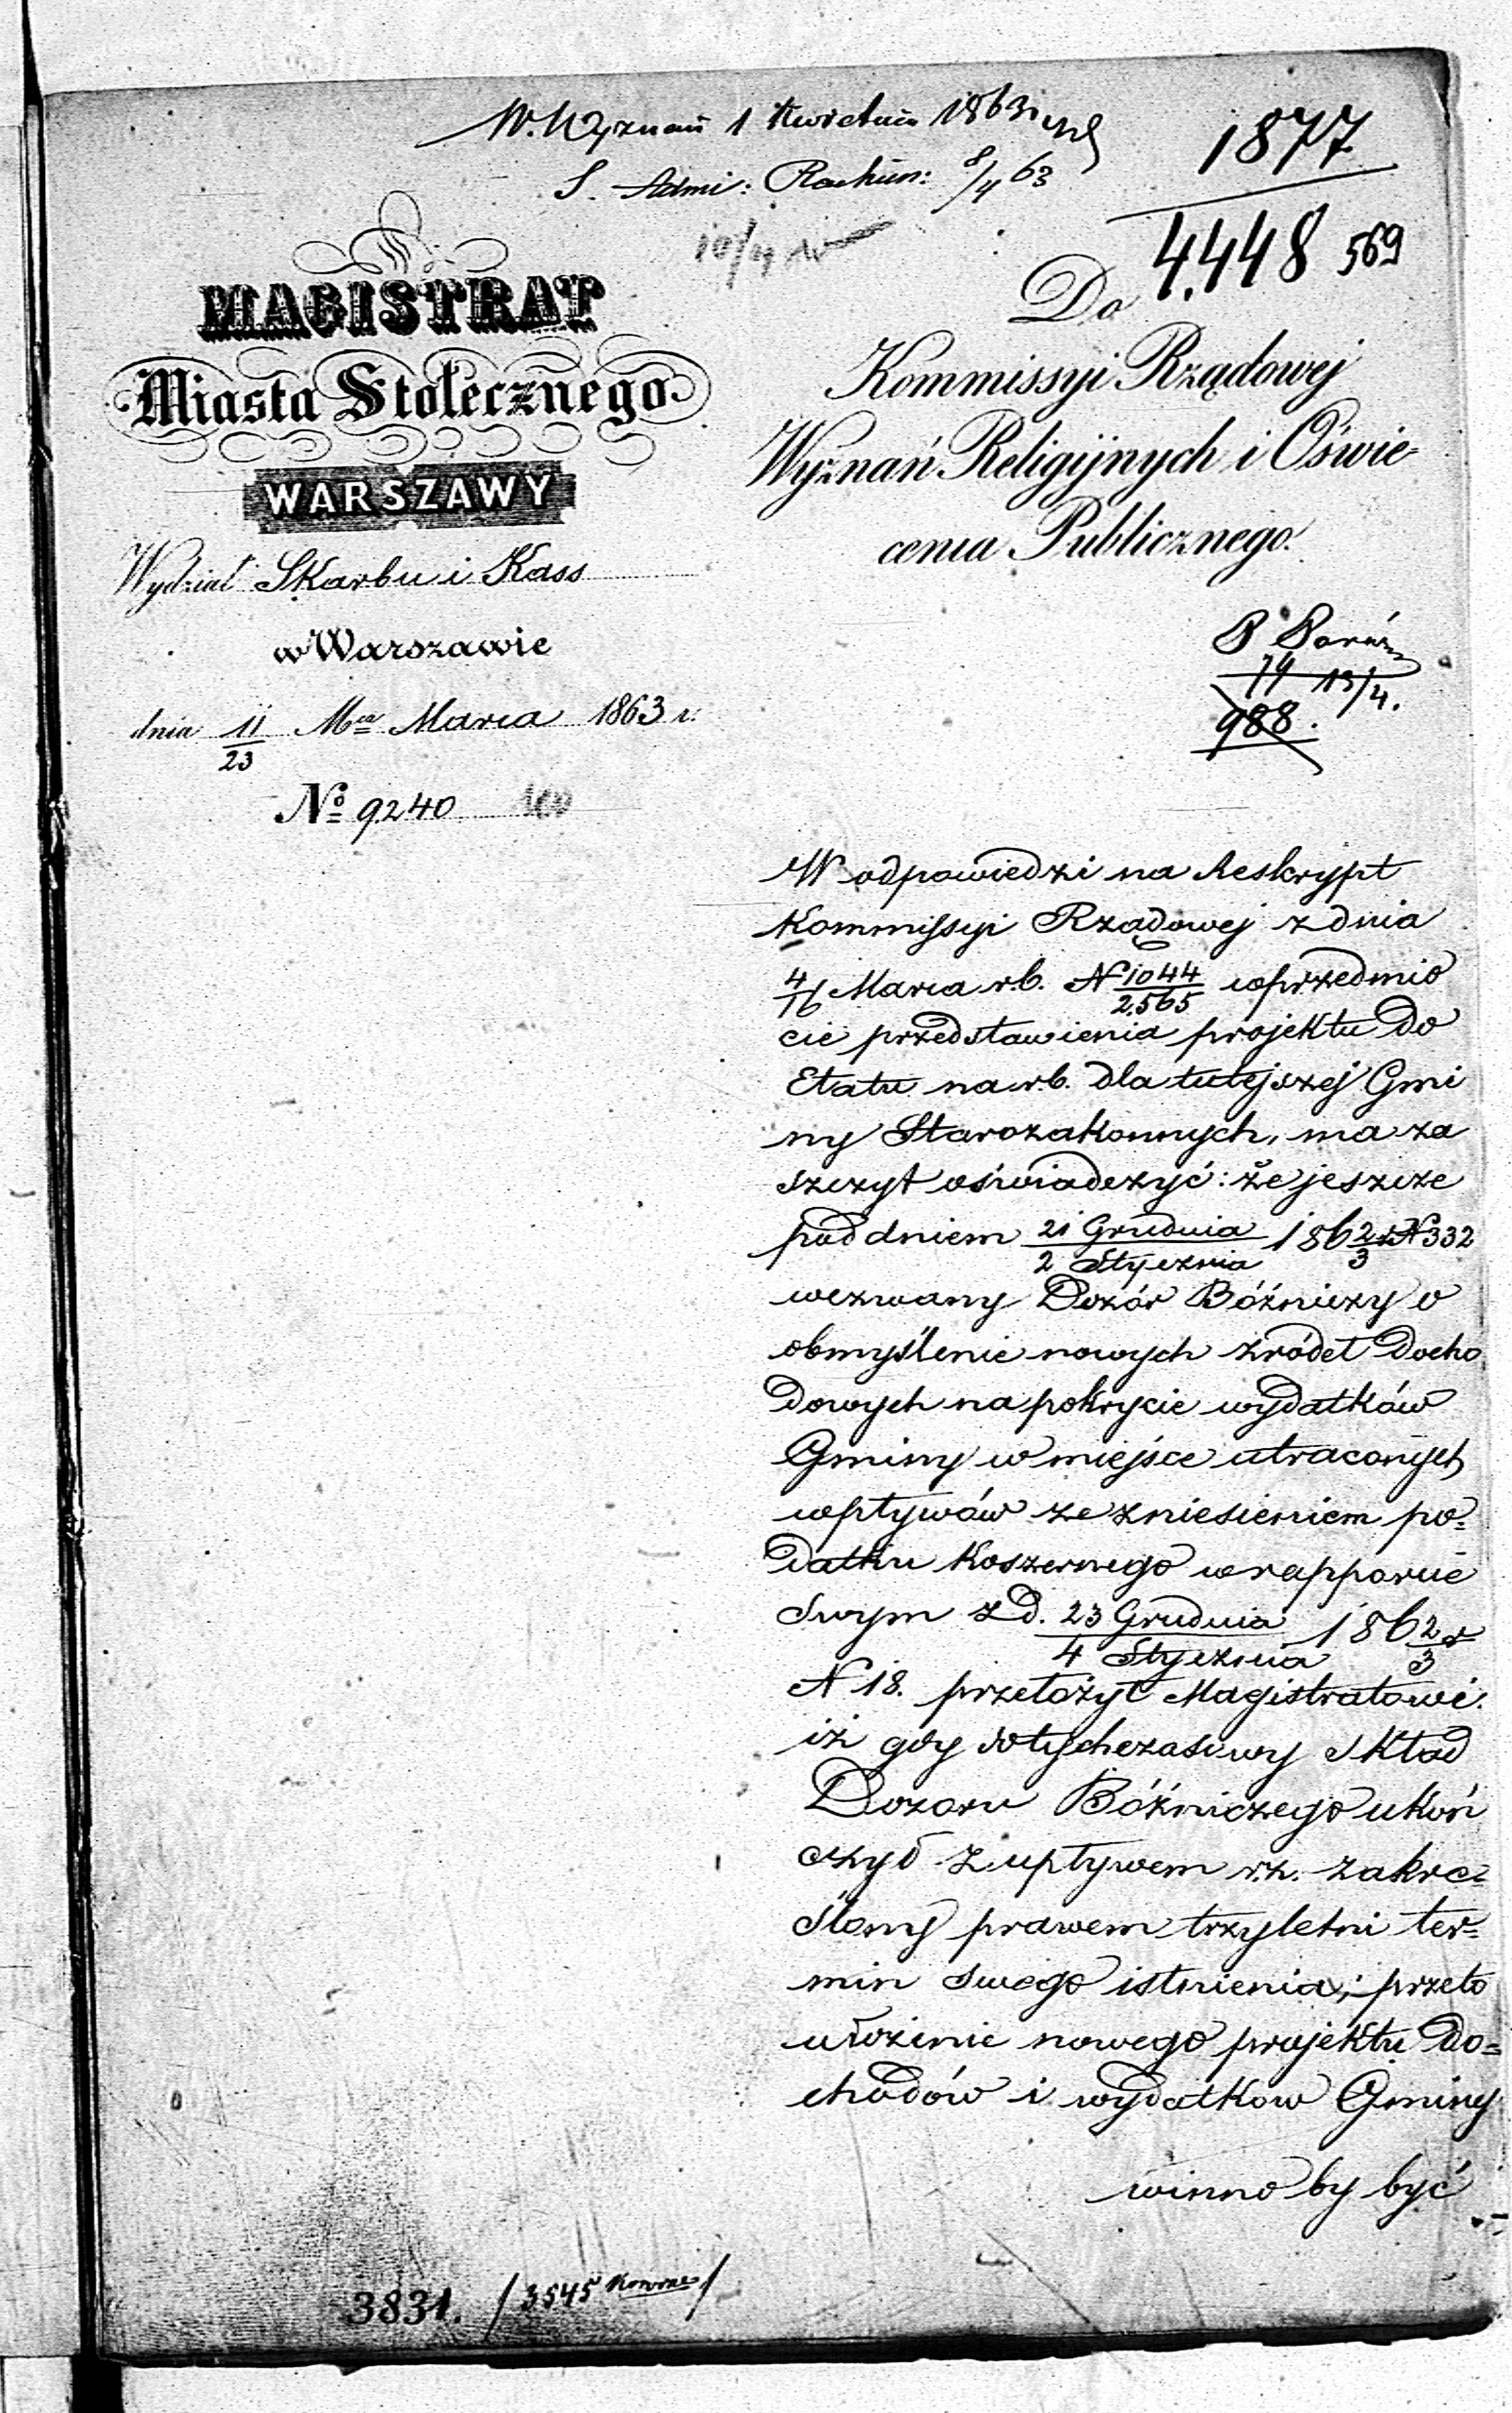 W. Wyznań 1 Kwietnia 1863
S. Admi: Rachun: 8/4 63
1877
4448 569
MAGISTRAT
Miasta Stołecznego
WARSZAWY
Wydział Skarbu i Kass
w Warszawie
dnia 11/23 Mca Marca 1863 r.
No 9240
Do
Kommissyi Rządowej
Wyznań Religijnych i Oświe-
cenia Publicznego.
13/4.
988.
W odpowiedzi na Reskrypt
Kommissyi Rządowej z dnia
4/16 Marca r.b. N 1044/2565 w przedmio
cie przedstawienia projektu do
Etatu na r.b. dla tutejszej Gmi
ny Starozakonnych, ma za
szczyt oświadczyć: że jeszcze
pod dniem 21 Grudnia/2 Stycznia 1862/3 r. N 332
wezwany Dozór Bóżniczy o
obmyślenie nowych źródeł docho
dowych na pokrycie wydatków
Gminy w miejsce utraconych
wpływów ze zniesieniem po-
datku Koszernego w rapporcie
swym z d. 23 Grudnia/4 Stycznia 1862/3 r
N 18. przełożył Magistratowi.
iż gdy dotychczasowy skład
Dozoru Bóźniczego ukoń
czył z upływem r.z. zakre-
ślony prawem trzyletni ter-
min swego istnienia; przeto
ułożenie nowego projektu do-
chodów i wydatkow Gminy
winno by być
3831. /3545